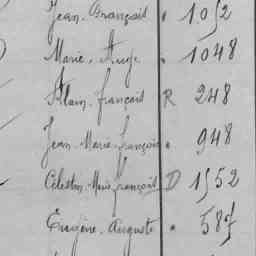 Jean-Français " 1052
Marie-Ange " 1048
Alain-français R 248
Jean-Marie-français " 948
Célestin-Marie-français D 1552
Eugène-Auguste " 587